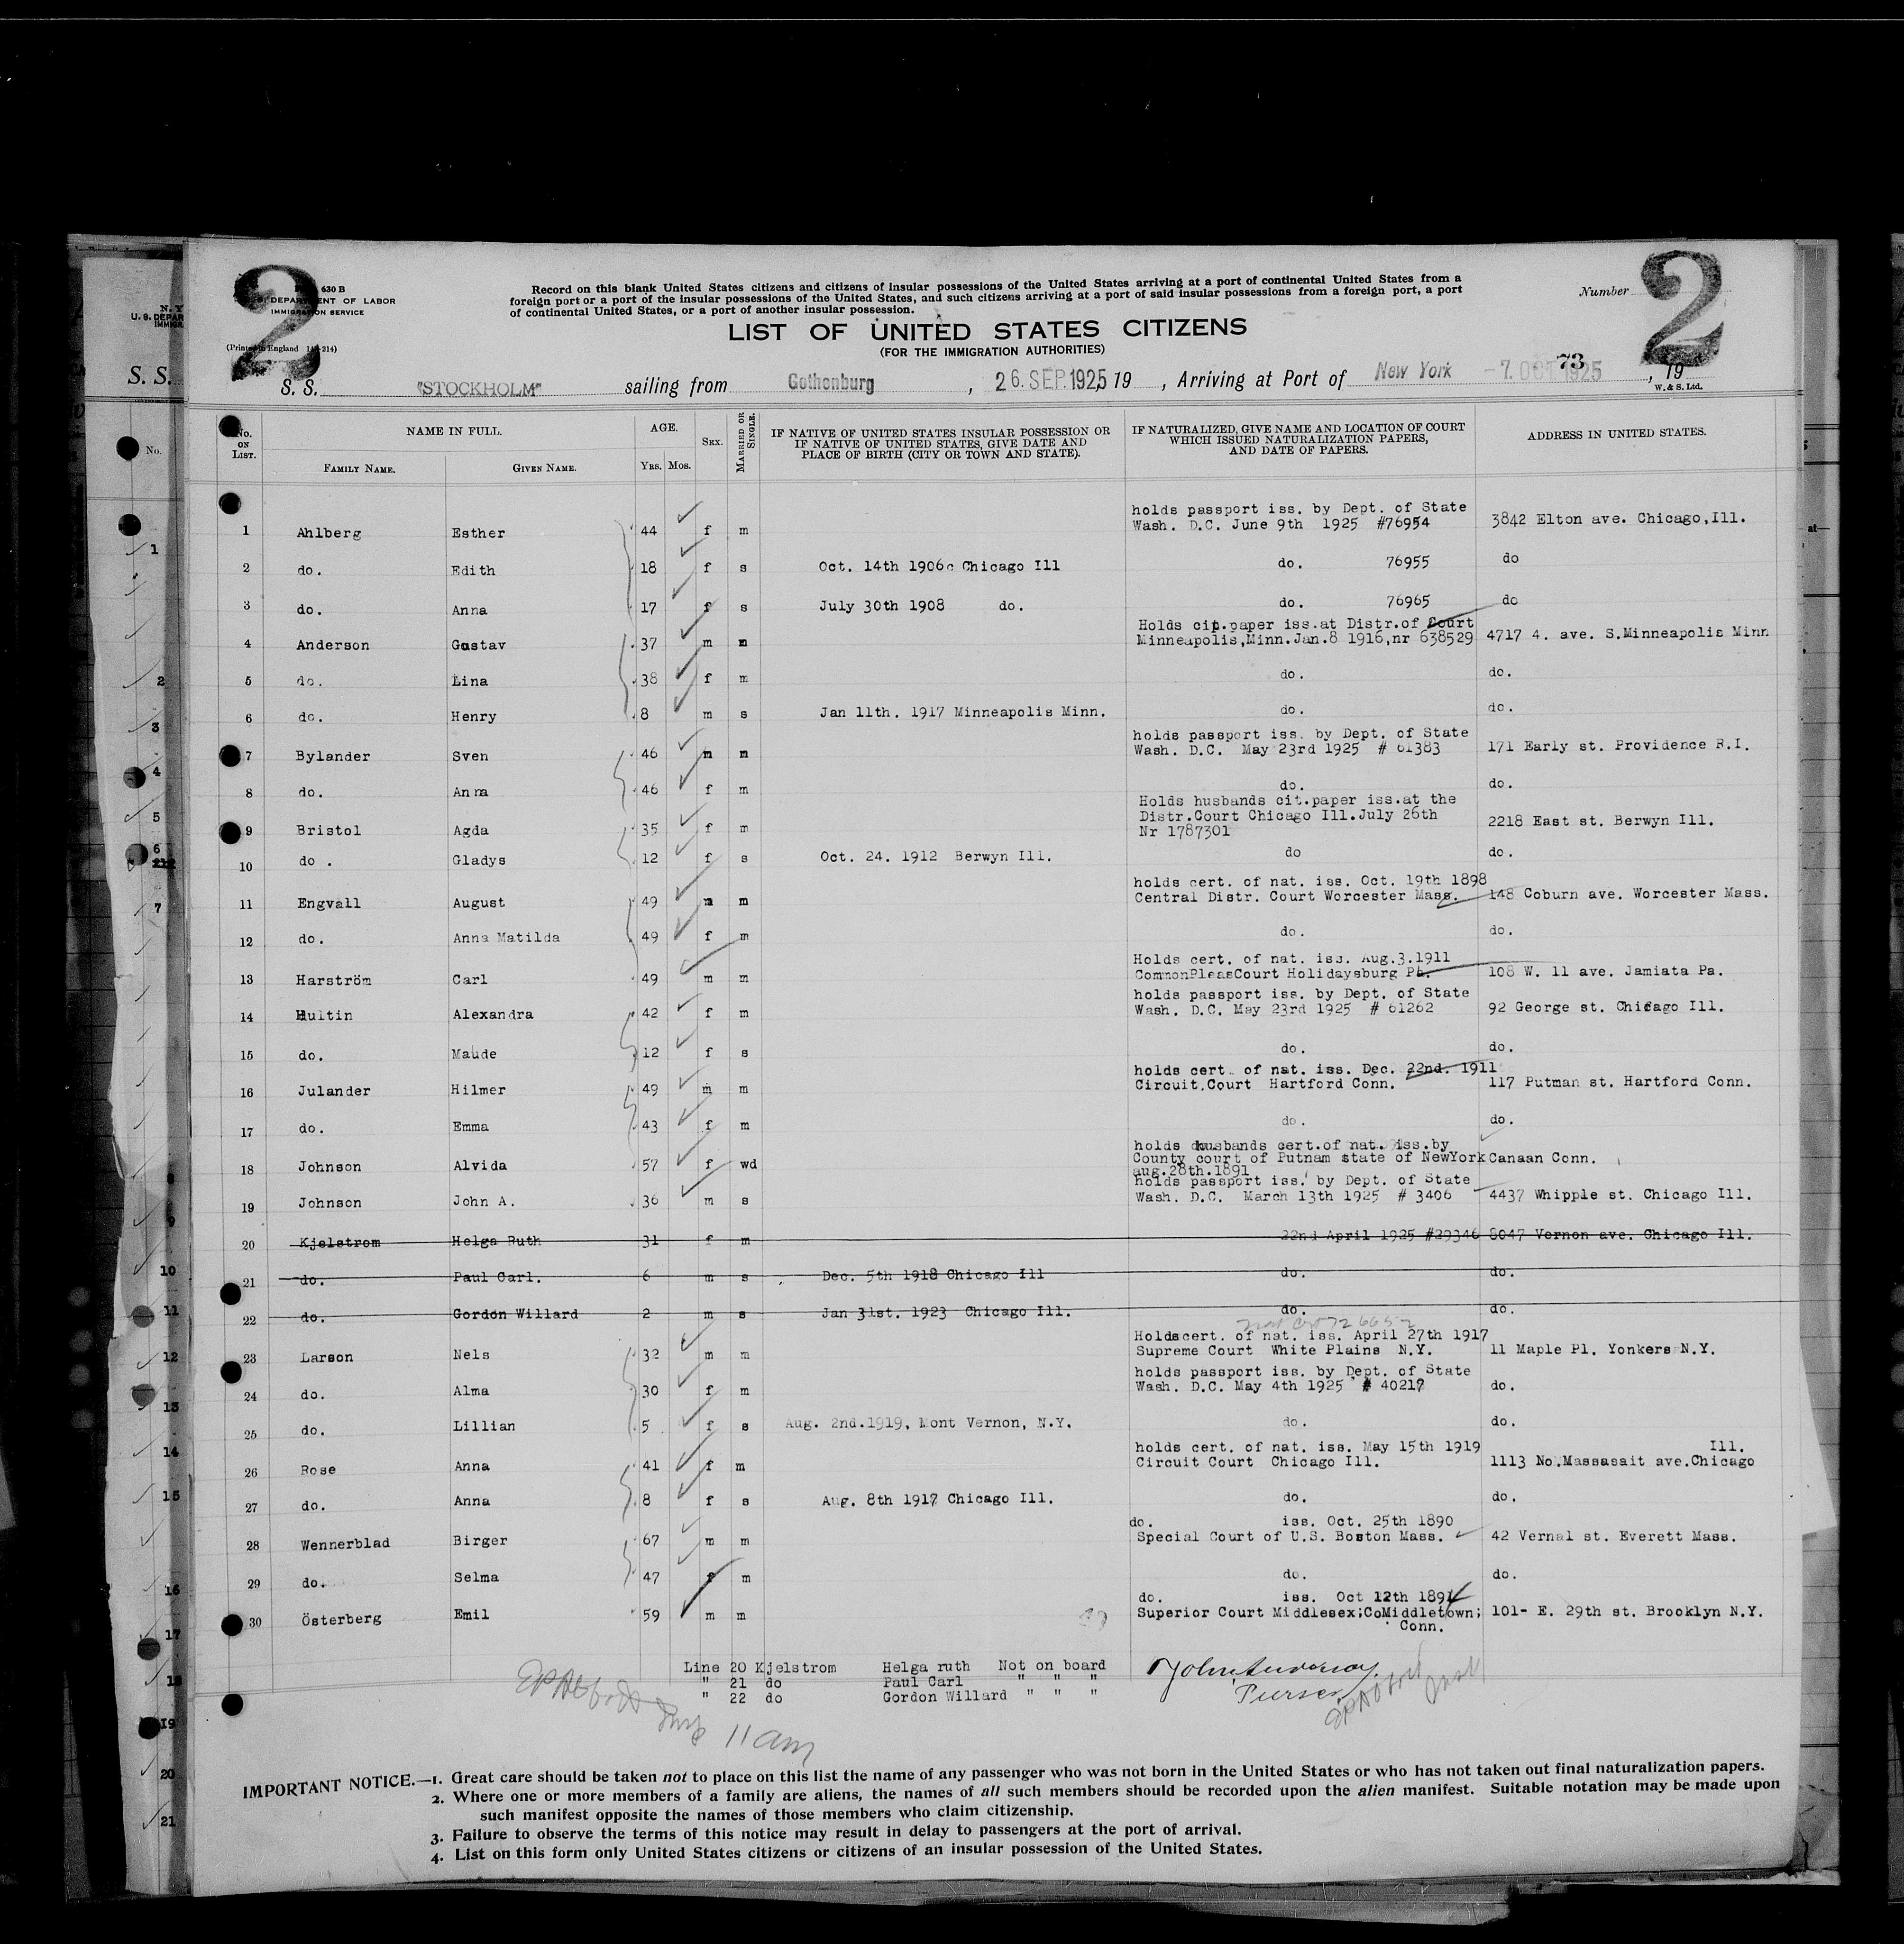 2
2
630 B
U.S. DEPARTMENT OF LABOR
IMMIGRATION SERVICE
(Printed in England
Record on this blank United States citizens and citizens of insular possessions of the United States arriving at a port of continental United States from a
foreign port or a port of the insular possessions of the United States, and such citizens arriving at a port of said insular possessions from a foreign port, a port
of continental United States, or a port of another insular possession.
Number
LIST OF UNITED STATES CITIZENS
(FOR THE IMMIGRATION AUTHORITIES)
73
S. S. "STOCKHOLM" sailing from Gothenburg, 26.SEP.1925 19 , Arriving at Port of New York -7.OCT 1925, 19
W. & S. Ltd.
No. ON LIST. NAME IN FULL. FAMILY NAME. GIVEN NAME. AGE. YRS. MOS. SEX. MARRIED OR SINGLE. IF NATIVE OF UNITED STATES INSULAR POSSESSION OR IF NATIVE OF UNITED STATES, GIVE DATE AND PLACE OF BIRTH (CITY OR TOWN AND STATE). IF NATURALIZED, GIVE NAME AND LOCATION OF COURT WHICH ISSUED NATURALIZATION PAPERS, AND DATE OF PAPERS. ADDRESS IN UNITED STATES.
holds passport iss. by Dept. of State
1 Ahlberg Esther 44 f m Wash. D.C. June 9th 1925 #76954 3842 Elton ave. Chicago,Ill.
2 do. Edith 18 f s Oct. 14th 1906 Chicago Ill do. 76955 do
3 do. Anna 17 f s July 30th 1908 do. do. 76965 do
Holds cit.paper iss.at Distr.of Court
4 Anderson Gustav 37 m m Minneapolis,Minn.Jan.8 1916,nr 638529 4717 4. ave. S.Minneapolis Minn
5 do. Lina 38 f m do. do.
6 do. Henry 8 m s Jan 11th. 1917 Minneapolis Minn. do. do.
holds passport iss. by Dept. of State
7 Bylander Sven 46 m m Wash. D.C. May 23rd 1925 # 61383 171 Early st. Providence R.I.
8 do. Anna 46 f m do. do.
Holds husbands cit.paper iss.at the
9 Bristol Agda 35 f m Distr.Court Chicago Ill.July 26th 2218 East st. Berwyn Ill.
Nr 1787301
10 do . Gladys 12 f s Oct. 24. 1912 Berwyn Ill. do do.
holds cert. of nat. iss. Oct. 19th 1898
11 Engvall August 49 m m Central Distr. Court Worcester Mass. 148 Coburn ave. Worcester Mass.
12 do. Anna Matilda 49 f m do. do.
Holds cert. of nat. iss. Aug.3.1911
13 Harström Carl 49 m m CommonPleasCourt Holidaysburg Pa. 108 W. 11 ave. Jamiata Pa.
holds passport iss. by Dept. of State
14 Hultin Alexandra 42 f m Wash. D.C. May 23rd 1925 # 61262 92 George st. Chicago Ill.
15 do. Maude 12 f s do. do.
holds cert. of nat. iss. Dec. 22nd. 1911
16 Julander Hilmer 49 m m Circuit.Court Hartford Conn. 117 Putman st. Hartford Conn.
17 do. Emma 43 f m do. do.
holds husbands cert.of nat. iss.by
18 Johnson Alvida 57 f wd County court of Putnam state of NewYork Canaan Conn.
aug.28th.1891
holds passport iss. by Dept. of State
19 Johnson John A. 36 m s Wash. D.C. March 13th 1925 # 3406 4437 Whipple st. Chicago Ill.
20 Kjelstrom Helga Ruth 31 f m 22nd April 1925 #29346 8047 Vernon ave. Chicago Ill.
21 do. Paul Carl. 6 m s Dec. 5th 1918 Chicago Ill do. do.
22 do. Gordon Willard 2 m s Jan 31st. 1923 Chicago Ill. do. do.
Holdscert. of nat. iss. April 27th 1917
23 Larson Nels 32 m m Supreme Court White Plains N.Y. 11 Maple Pl. Yonkers N.Y.
holds passport iss. by Dept. of State
24 do. Alma 30 f m Wash. D.C. May 4th 1925 # 40217 do.
25 do. Lillian 5 f s Aug. 2nd.1919, Mont Vernon, N.Y. do. do.
holds cert. of nat. iss. May 15th 1919 Ill.
26 Rose Anna 41 f m Circuit Court Chicago Ill. 1113 No.Massasait ave.Chicago
27 do. Anna 8 f s Aug. 8th 1917 Chicago Ill. do. do.
do. iss. Oct. 25th 1890
28 Wennerblad Birger 67 m m Special Court of U.S. Boston Mass. 42 Vernal st. Everett Mass.
29 do. Selma 47 f m do. do.
do. iss. Oct 12th 1894
30 Österberg Emil 59 m m Superior Court Middlesex;CoMiddletown; 101- E. 29th st. Brooklyn N.Y.
Conn.
Line 20 Kjelstrom Helga ruth Not on board
" 21 do Paul Carl " " "
" 22 do Gordon Willard " " "
Purser
11 am
IMPORTANT NOTICE.—1. Great care should be taken not to place on this list the name of any passenger who was not born in the United States or who has not taken out final naturalization papers.
2. Where one or more members of a family are aliens, the names of all such members should be recorded upon the alien manifest. Suitable notation may be made upon
such manifest opposite the names of those members who claim citizenship.
3. Failure to observe the terms of this notice may result in delay to passengers at the port of arrival.
4. List on this form only United States citizens or citizens of an insular possession of the United States.